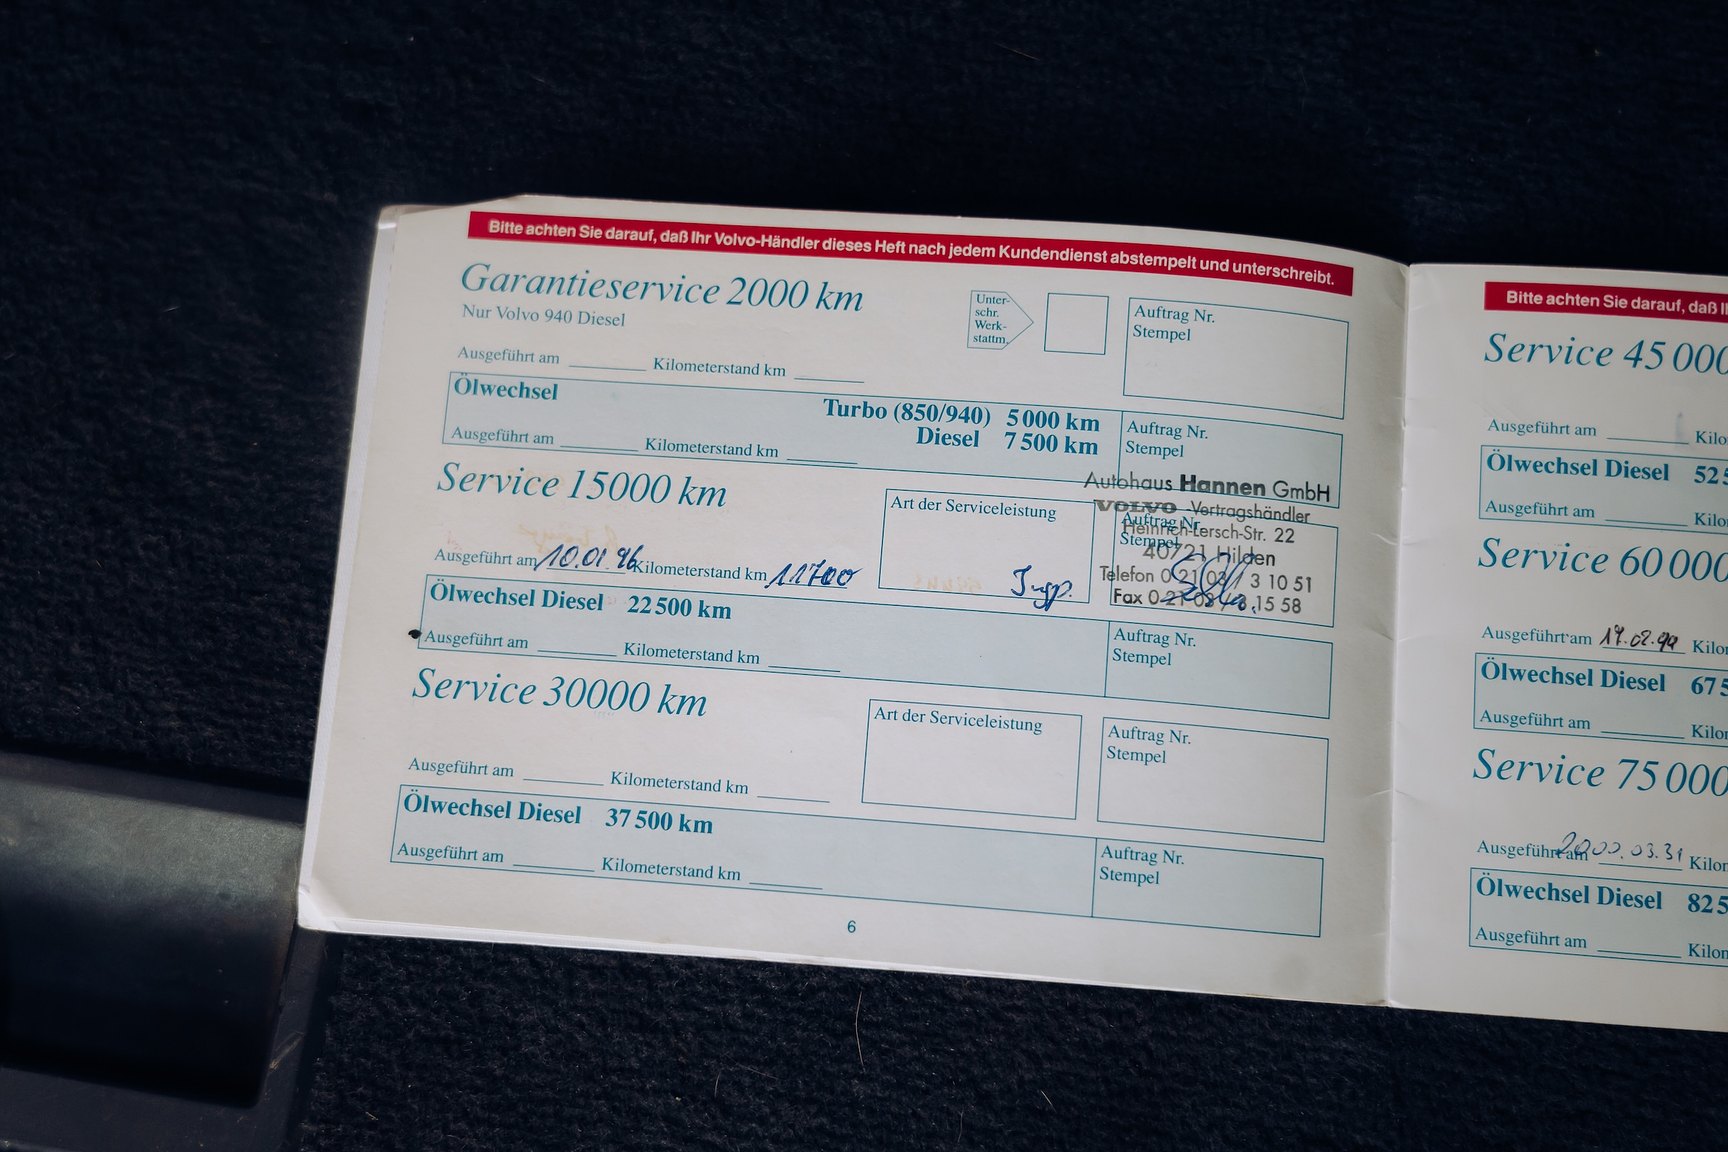 Bitte achten Sie darauf, daß Ihr Volvo-Händler dieses Heft nach jedem Kundendienst abstempelt und unterschreibt.
Garantieservice 2000 km
Nur Volvo 940 Diesel
Unter-
schr.
Werk-
stattm.
Auftrag Nr.
Stempel
Ausgeführt am Kilometerstand km
Ölwechsel
Turbo (850/940) 5 000 km
Diesel 7 500 km
Ausgeführt am Kilometerstand km
Auftrag Nr.
Stempel
Service 15000 km
Art der Serviceleistung
Auftrag Nr.
Stempel
Autohaus Hannen GmbH
VOLVO -Vertragshändler
Heinrich-Lersch-Str. 22
40721 Hilden
Telefon 0 21 03 / 3 10 51
Fax 0 21 03 / 3 15 58
Ausgeführt am 10.01.96 Kilometerstand km 11700
Insp.
Ölwechsel Diesel 22 500 km
Ausgeführt am Kilometerstand km
Auftrag Nr.
Stempel
Service 30000 km
Art der Serviceleistung
Auftrag Nr.
Stempel
Ausgeführt am Kilometerstand km
Ölwechsel Diesel 37 500 km
Ausgeführt am Kilometerstand km
Auftrag Nr.
Stempel
6
Bitte achten Sie darauf, daß
Service 45 000
Ausgeführt am Kilo
Ölwechsel Diesel 52
Ausgeführt am Kilo
Service 60 000
Ausgeführt am 17.02.99 Kilo
Ölwechsel Diesel 67 5
Ausgeführt am Kilo
Service 75 000
Ausgeführt am 2000.03.31 Kilo
Ölwechsel Diesel 82 5
Ausgeführt am Kilo